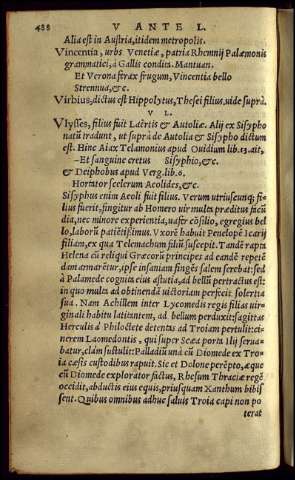 488 V ANTE L.
Alia est in Austria, itidem metropolis.
Vincentia, urbs Venetiæ, patria Rhemnij Palæmonis
grammatici, à Gallis condita. Mantuan.
Et Verona ferax frugum, Vincentia bello
Strennua, &c.
Virbius, dictus est Hippolytus, Thesei filius, uide suprà.
V L
Vlysses, filius fuit Laërtis & Autoliæ. Alij ex Sisypho
natũ tradunt, ut suprà de Autolia & Sisypho dictum
est. Hinc Aiax Telamonius apud Ouidium lib. 13. ait,
—Et sanguine cretus Sisyphio, &c.
& Deiphobus apud Verg. lib. 6.
Hortator scelerum Aeolides, &c.
Sisyphus enim Aeoli fuit filius. Verum utriuscunq; fi-
lius fuerit, fingitur ab Homero uir multa præditus facũ
dia, nec minore experientia, uafer cõsilio, egregius bel
lo, laborũ patiẽtissimus. Vxorẽ habuit Penelopẽ Icarij
filiam, ex qua Telemachum filiũ suscepit. Tandẽ rapta
Helena cũ reliqui Græcorũ principes ad eandẽ repetẽ
dam armarẽtur, ipse insaniam fingẽs salem serebat: sed
à Palamede cognita eius astutia, ad bellũ pertractus est:
in quo multa ad obtinendã uictoriam perfecit solertia
sua. Nam Achillem inter Lycomedis regis filias uir-
ginali habitu latitantem, ad bellum perduxit: sagittas
Herculis à Philoctete detentas ad Troiam pertulit: ci-
nerem Laomedontis, qui super Scæa porta Ilij serua-
batur, clàm sustulit: Palladiũ unà cũ Diomede ex Tro
ia cæsis custodibus rapuit. Sic et Dolone perẽpto, æque
cũ Diomede explorator factus, Rhesum Thraciæ regẽ
occidit, abductis eius equis, priusquam Xanthum bibis
sent. Quibus omnibus adhuc saluis Troia capi non po
terat